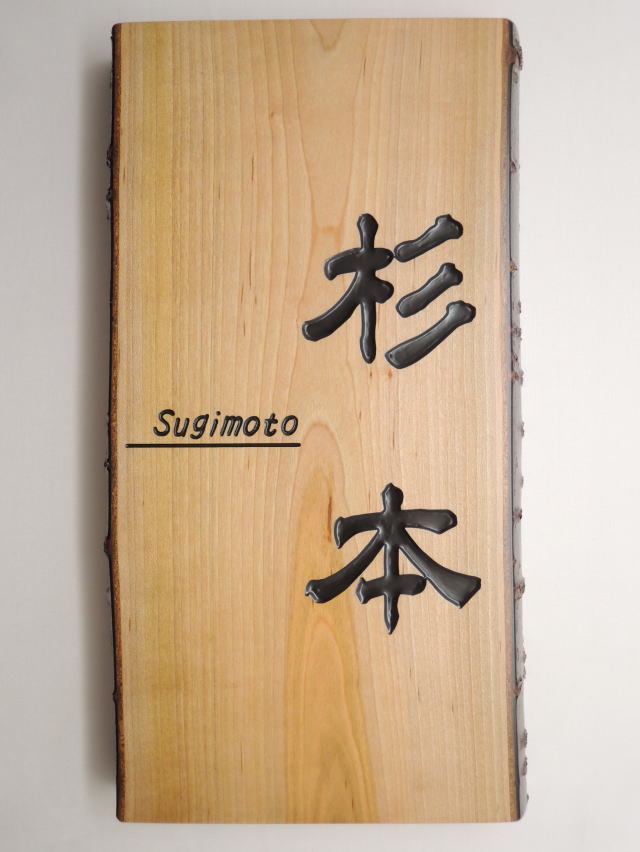 杉本
Sugimoto